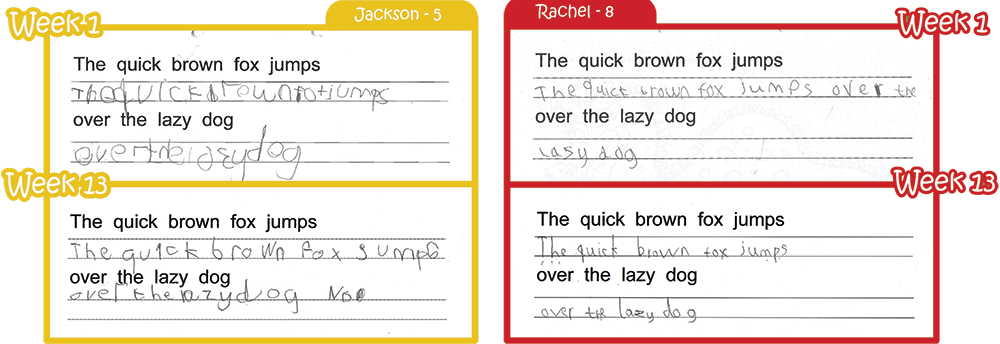 Week 1
Jackson - 5
The quick brown fox jumps
Thequickbrownfoxjumps
over the lazy dog
overthelazydog
Week 13
The quick brown fox jumps
The quick brown fox jumps
over the lazy dog
over thelazydog
Rachel - 8
Week 1
The quick brown fox jumps
The quick brown fox jumps over the
over the lazy dog
lasy dog
Week 13
The quick brown fox jumps
The quick brown fox jumps
over the lazy dog
over the lazy dog